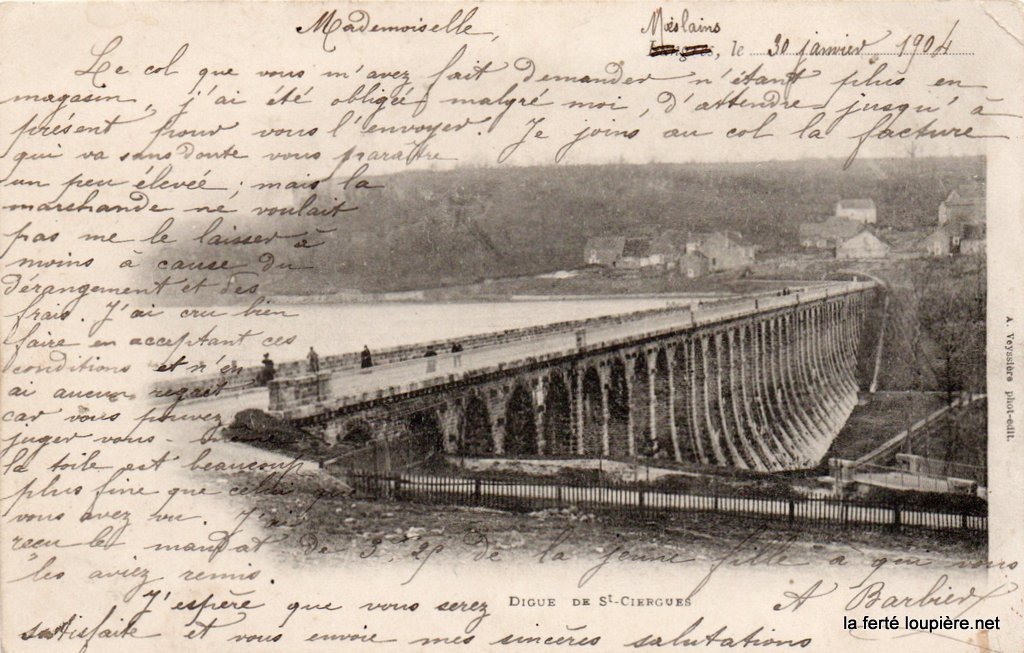 Mademoiselle,
Moëslains
Langres, le 30 janvier 1904
Le col que vous m'avez fait demander n'étant plus en
magasin, j'ai été obligée malgré moi, d'attendre jusqu'à
présent pour vous l'envoyer. Je joins au col la facture
qui va sans doute vous paraître
un peu élevée; mais la
marchande ne voulait
pas me le laisser à
moins à cause du
dérangement et des
frais. J'ai cru bien
faire en acceptant ces
conditions et n'en
ai aucun regret
car vous pouvez
juger vous-
la toile est beaucoup
plus fine que celui que
vous avez vu. J'ai
reçu le mandat de 3f,25 de la jeune fille a qui vous
les aviez remis.
J'espère que vous serez
satisfaite et vous envoie mes sincères salutations
A Barbier
DIGUE DE St-CIERGUES
A. Veyssière phot-édit.
la ferté loupière.net